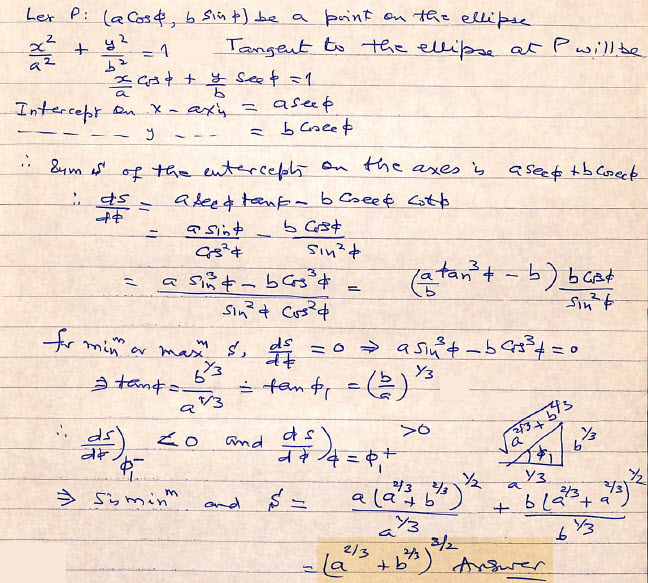 Let P: (a Cosφ, b Sinφ) be a point on the ellipse
x²/a² + y²/b² = 1 Tangent to the ellipse at P will be
x/a Cosφ + y/b Secφ = 1
Intercept on x-axis = a secφ
— — — — — y — - - = b Cosecφ
∴ Sum S of the intercepts on the axes is a secφ + b cosecφ
∴ ds/dφ = a secφ tanφ - b Cosecφ cotφ
= a sinφ/Cos²φ - b Cosφ/Sin²φ
= (a Sin³φ - b Cos³φ)/(Sin²φ Cos²φ) = (a/b tan³φ - b) b Cosφ/Sin²φ
for minᵐ or maxᵐ S, ds/dφ = 0 ⇒ a Sin³φ - b Cos³φ = 0
⇒ tanφ = b^1/3/a^1/3 = tanφ₁ = (b/a)^1/3
∴ ds/dφ)φ₁⁻ < 0 and ds/dφ)φ=φ₁⁺ >0
√a^2/3 + b^2/3
b^1/3
φ₁
a^1/3
⇒ S is minᵐ and S = a(a^2/3 + b^2/3)^1/2/a^1/3 + b(a^2/3 + a^2/3)^1/2/b^1/3
= (a^2/3 + b^2/3)^3/2 Answer